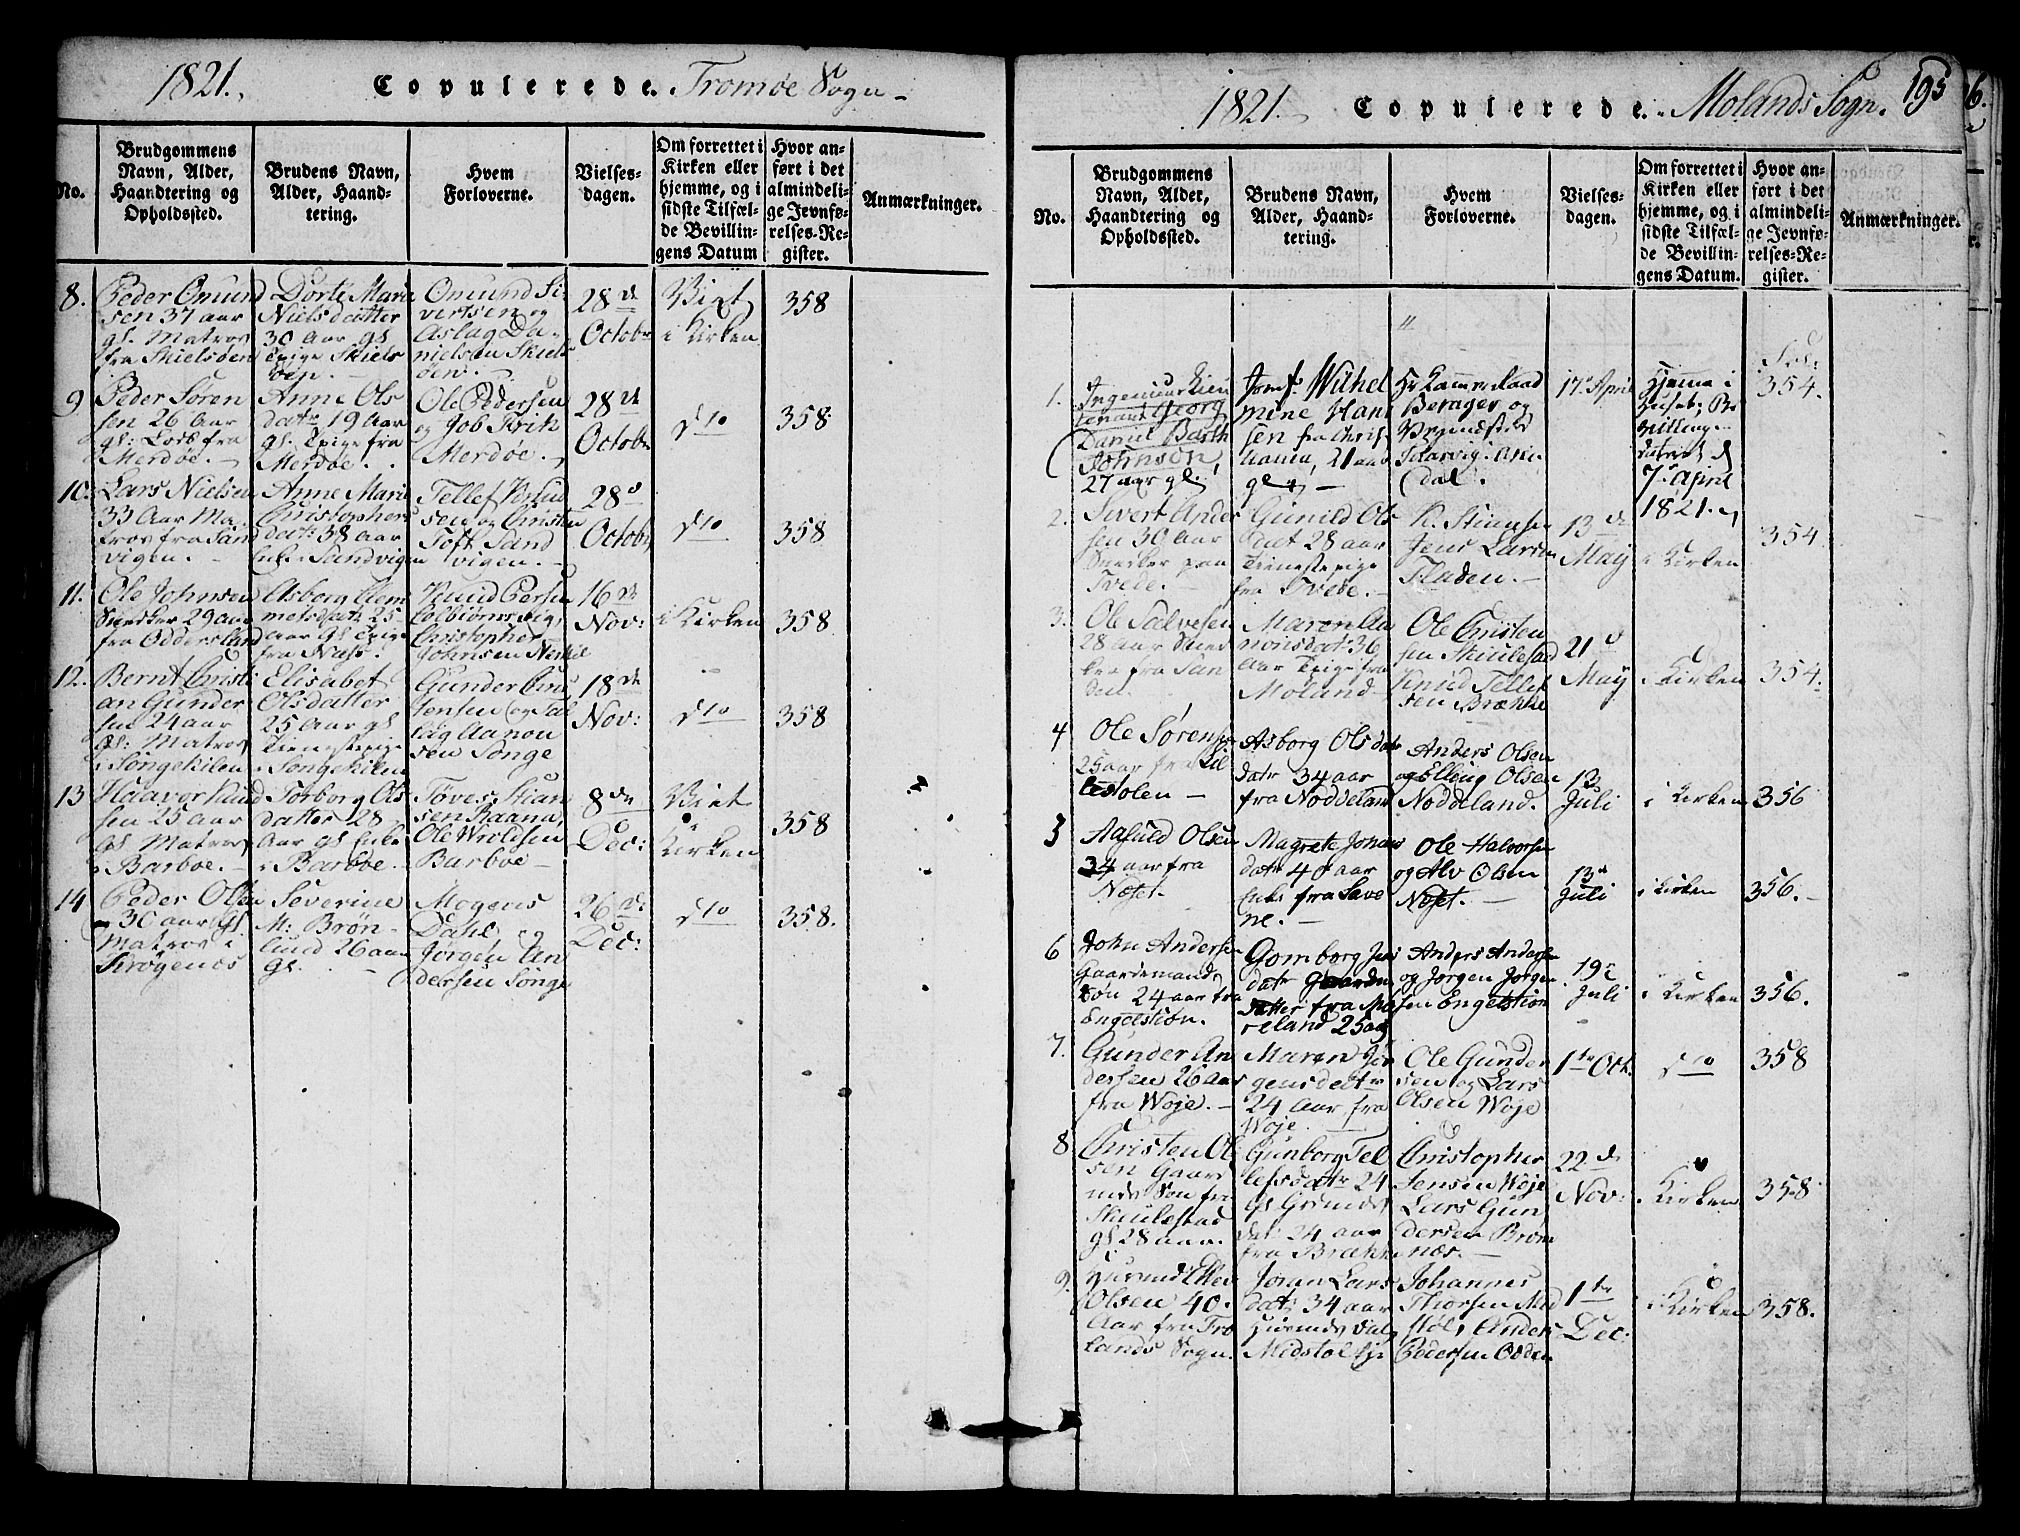 1821. Copulerede. Tromøe Sogn
No.
Brudgommens
Navn, Alder,
Haandtering og
Opholdssted.
Brudens Navn,
Alder, Haand-
tering.
Hvem
Forloverne.
Vielses-
dagen.
Om forrettet i
Kirken eller
hjemme, og i
sidste Tilfæl-
de Bevillin-
gens Datum
Hvor an-
ført i det
almindeli-
ge Jevnfø-
relses-Re-
gister.
Anmærkninger.
8.
Peder Omund
sen 37 aar
gl. Matros
fra Skielsøen
Dorte Marie
Nielsdatter
30 Aar gl
Pige Skiels
øen.
Omund Si-
vertsen og
Aslag Da-
nielsen Skiels
øen.
28de
Octobr
Viet
i Kirken
358
9
Peder Søren
sen 26 aar
gl: Lods fra
Merdøe.
Anne Ols
datr 19 Aar
gl. Pige fra
Merdøe.
Ole Pedersen
og Job
Merdøe.
28de
Octobr
dto
358
10.
Lars Nielsen
33 Aar Ma-
tros fra San
vigen.
Anne Marie
Christophers
datr 38 aar
Enke Sandvigen
Tellef Knud
sen og Christen
Toft Sand
vigen.
28d
Octobr
dto
358
11.
Ole Johnsen
Snedker 29 aar
fra Oddersland
Asborg Clem
metsdatr 25
aar gl Pige
fra Næss.
Knud Persen
Colbiørnsvig,
Christopher
Johnsen
16de
Nov:
i Kirken
358
12.
Bernt Christi
an Gunder
sen 24 aar
gl: Matros
i Songekilen
Elisabet
Olsdatter
25 Aar gl
Tienestepige
i Songekilen
Gunder Chris
tensen og
Aanon
sen Songe
18de
Nov:
dto
358
13
Haavor Knud
sen 25 aar
gl Matros
i Barboe
Torborg Ols
datter 28
aar gl Enke
i Barboe
Toves Stian
sen Raana,
Ole Wroldsen
Barboe
8de
Dec:
Viet
Kirken
358
14
Peder Olsen
30 aar gl.
Matros i
Krøgenes
Severine
M: Brøn-
lund 26 aar
gl.
Mogens
Dahl og
Jørgen An
dersen Songe
26de
Dec:
dto
358.
1821. Copulerede. Molands Sogn. 195
No.
Brudgommens
Navn, Alder,
Haandtering og
Opholdssted.
Brudens Navn,
Alder, Haand-
tering.
Hvem
Forloverne.
Vielses-
dagen.
Om forrettet i
Kirken eller
hjemme, og i
sidste Tilfæl-
de Bevillin-
gens Datum.
Hvor an-
ført i det
almindeli-
ge Jevnfø-
relses-Re-
gister.
Anmærkninger.
1.
Ingenieur Lieu
tenant Georg
Daniel Barth
Johnson,
27 aar gl.
Jomf. Wilhel
mine Han
sen fra Chris
tiania, 21 aar
gl
Hr Kammeraad
Berager og
Arn
dal.
17d April
Hjemme i
Huset; Be
villing
dateret d
7de April
1821.
354.
2.
Sivert Ander
sen 30 aar
Snedker paa
Tvede.
Gunild Ols
dat 28 aar
Tienestepige
fra Tvede.
K. Stiansen
Jens Larsen
Fladen.
13de
May
i Kirken
354
3.
Ole Salvesen
28 aar Sned
ker fra San
den.
Maren Aa
nonsdatr 36
aar Pige fra
Moland
Ole Christen
sen Skiulestad
Knud Tellef
sen Brække
21d
May
i Kirken
354.
4
Ole Sørens
25 aar fra Lil
lestolen
Asborg Olsdatr
datr 34 aar
fra Noddeland
Anders Olsen
og Elling Olsen
Noddeland.
12
Juli
i Kirken
356
5
Aasuld Olsen
34 aar fra
Næset.
Magrete Johans
datr 40 aar
Enke fra Save
ne.
Ole Halvorsen
og Alv Olsen
Næset.
13d
Juli
i Kirken
356.
6
John Andersen
Gaardemands
søn 24 aar fra
Engelstiøn.
Gomborg Jens
datr Gaardm
datter fra Mo
reland 25 aar
Anders Andersen
og Jørgen Jørgen
sen Engelstiøn
19de
Juli
i Kirken
356.
7.
Gunder An
dersen 26 aar
fra Woje.
Maren Jør
gensdatr
24 Aar fra
Woje.
Ole Gunder
sen og Lars
Olsen Woje
1te Oct.
dto
358
8
Christen Ol
sen Gaard
mds Søn fra
Skiulestad
gl 28 aar.
Gunborg Tel
lefsdatr 24
gl Grmds
dat: 24 aar
fra Brække
Christopher
Jensen Woje
Lars Gun
dersen Brøm
næs.
22de
Nov:
i Kirken
358
9.
Husmd
Olsen 40
Aar fra Tro
lands Sogn.
Joran Lars
datr 34 aar
Husmds dat,
Midstøl
Johannes
Thorsen Mid
støl, Anders
Pedersen Odden
1te
Dec:
i Kirken
358.